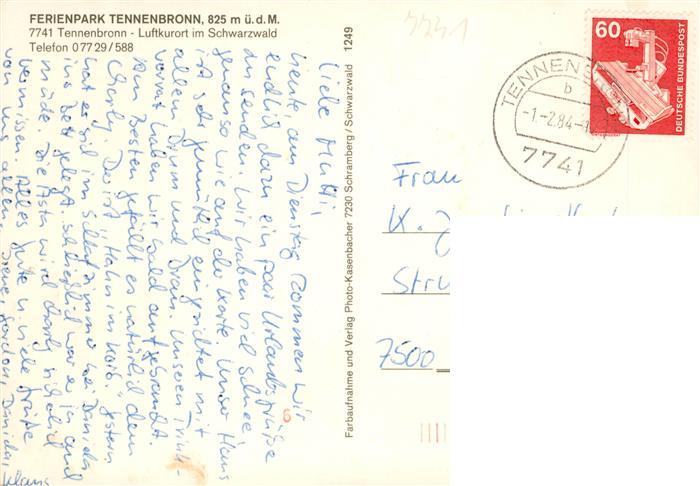 FERIENPARK TENNENBRONN, 825 m ü. d. M.
7741 Tennenbronn - Luftkurort im Schwarzwald
Telefon 0 77 29 / 588
Liebe Mutti,
heute am Dienstag kommen wir
endlich dazu ein paar Urlaubsgrüße
zu senden. Wir haben viel Schnee
genauso wie auf der Karte. Unser Haus
ist sehr gemütlich eingerichtet mit
allem Drum und Dran. Unseren
vorrat haben wir bald aufgebraucht.
Am Besten gefällt es natürlich dem
Charly. Da ist "Hahn im Korb". Gestern
hat er sich im Schlafzimmer bei
ins Bett gelegt. Schließlich war er ja auch
müde. Die wird Charly sicherlich
vermissen. Alles Gute und viele Grüße
von uns allen. Deine
Klaus
Farbaufnahme und Verlag Photo-Kasenbacher 7230 Schramberg / Schwarzwald 1249
6
7741
60
DEUTSCHE BUNDESPOST
b
-1.-2.84-1
7741
Frau
K.
7500